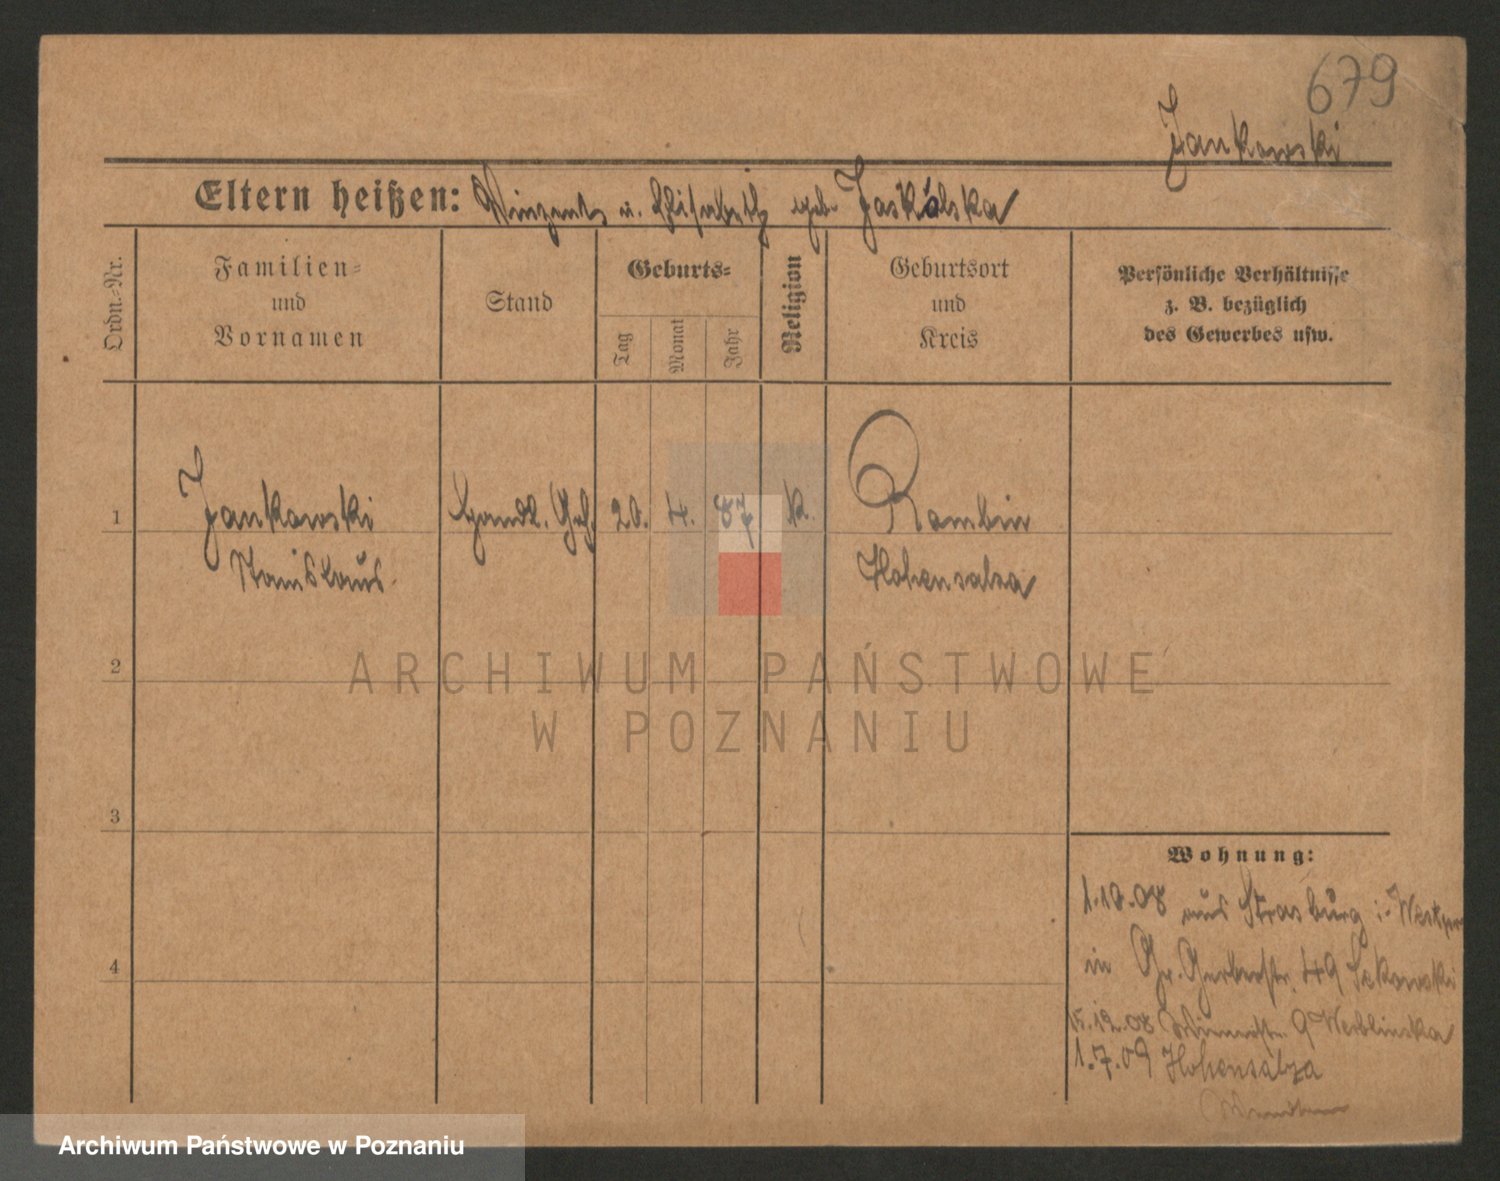 679
Jankowski
Eltern heißen: Vinzent u. Elisabeth geb. Jaskólska
Ordn.-Nr.
Familien-
und
Vornamen
Stand
Geburts-
Tag
Monat
Jahr
Religion
Geburtsort
und
Kreis
Persönliche Verhältnisse
z. B. bezüglich
des Gewerbes usw.
1
Jankowski
Stanislaus
Handl. Geh.
20. 4. 87
k.
Rombin
Hohensalza
2
ARCHIWUM PAŃSTWOWE
W POZNANIU
3
4
Wohnung:
1.10.08 aus Strasburg i. Westpr
in Gr. Gerberstr. 49
15.12.08 9 Weblinska
1.7.09 Hohensalza
Archiwum Państwowe w Poznaniu